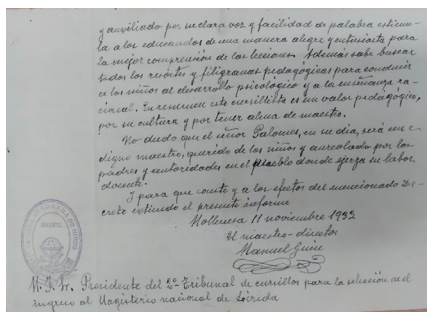 y auxiliado por su clara voz y facilidad de palabra estimu-
la a los educandos de una manera alegre y entusiasta para
la mejor comprensión de las lecciones. Además sabe buscar
todos los resortes y filigranas pedagógicas para conducir
a los niños al desarrollo psicológico y a la enseñanza ra-
cional. En resumen este cursillista es un valor pedagógico,
por su cultura y por tener alma de maestro.
No dudo que el señor Palomes, en su día, será un
digno maestro, querido de los niños y aureolado por los
padres y autoridades en el pueblo donde ejerza su labor
docente.
I para que conste y a los efectos del mencionado De-
creto extiendo el presente informe
11 noviembre 1932
El maestro-director
Manuel
M. I. Sr. Presidente del 2º Tribunal de cursillos para la selección en el
ingreso al Magisterio nacional de Lérida